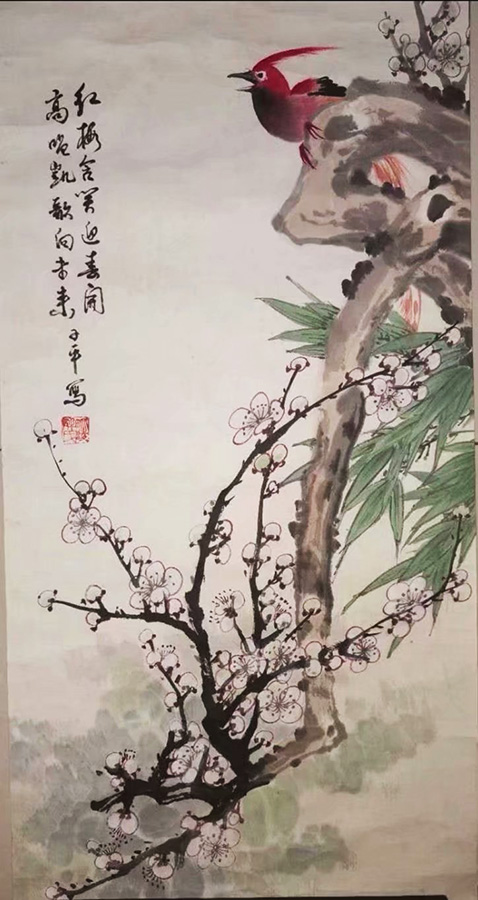 红梅含笑迎春开
高唱凯歌向未来 子平写